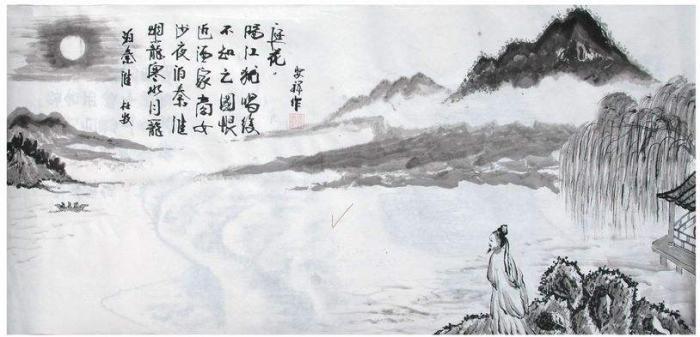 泊秦淮 杜牧
烟籠寒水月籠
沙夜泊秦淮
近酒家商女
不知亡國恨
隔江犹唱後
庭花。
安祥作